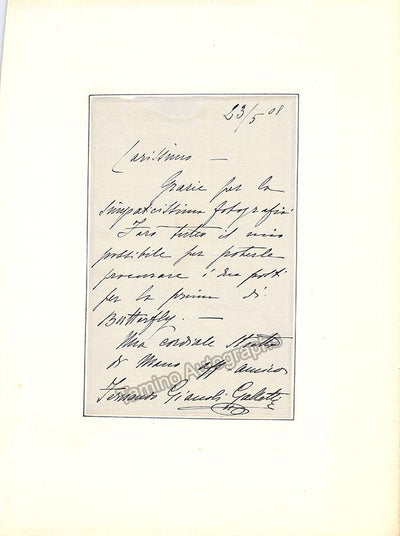 23/5 08
Carissimo —
Grazie per la
simpaticissima fotografia
Farò tutto il mio
possibile per poterle
procurare i due posti
per la prima di
Butterfly. —
Una cordiale stretta
di mano aff amico
Fernando Gianoli Galletti
Tamino Autographs